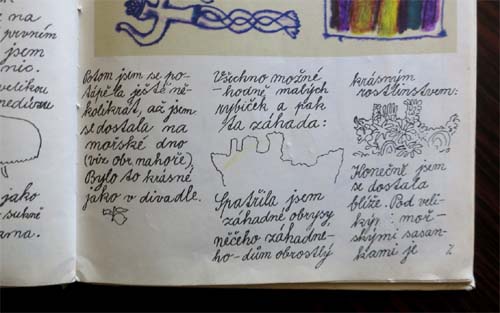 na
prvním
jsem
nic.
velikou
nedívau
jako
sukně
arna.
Potom jsem se po-
tápěla ještě ně-
kolikrát, až jsem
se dostala na
mořské dno
(viz obr. nahoře).
Bylo to krásné
jako v divadle.
Všechno možné
-hodně malých
rybiček a pak
ta záhada:
Spatřila jsem
záhadné obrysy
něčeho záhadné-
ho-dům obrostlý
krásným
rostlinstvem:
Konečně jsem
se dostala
blíže. Pod veli-
kými moř-
skými sasan-
kami je